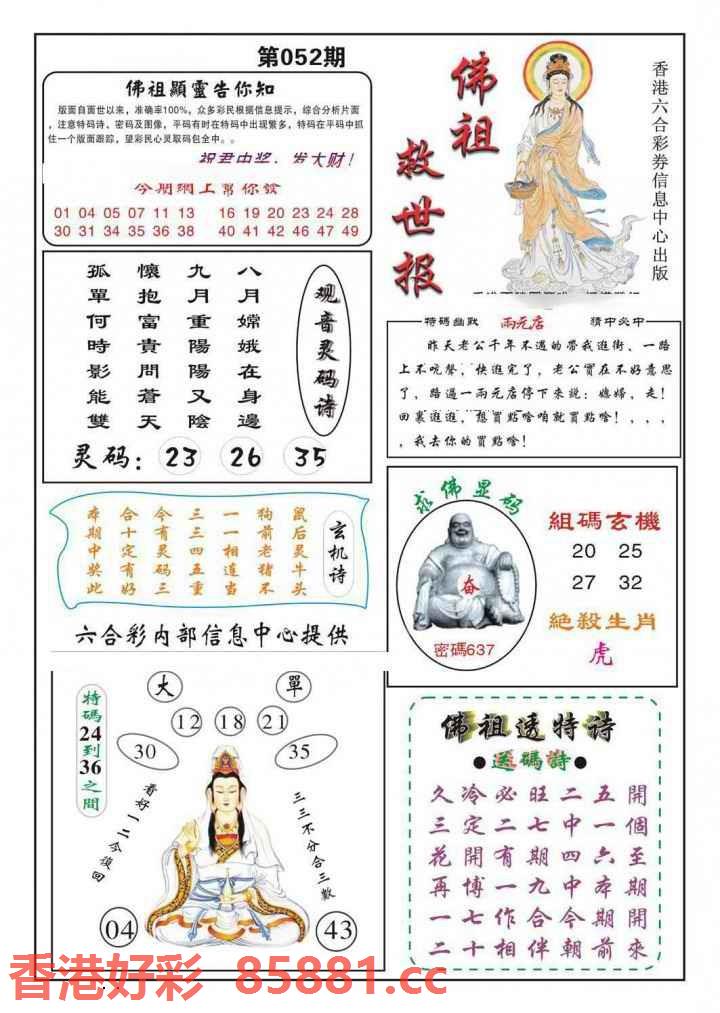 第052期
佛祖顯靈告你知
版面自面世以来，准确率100%，众多彩民根据信息提示，综合分析片面
，注意特码诗、密码及图像，平码有时在特码中出现繁多，特码在平码中抓
住一个版面跟踪，望彩民心灵取码包全中。。
祝君中奖，发大财！
今期網上幫你發
01 04 05 07 11 13 16 19 20 23 24 28
30 31 34 35 36 38 40 41 42 46 47 49
佛祖
救世报
香港六合彩券信息中心出版
八月嫦娥在身邊
九月重陽陽又陰
懷抱富貴問蒼天
孤單何時影能雙
观音灵码诗
灵码： 23 26 35
特碼幽默 兩元店 猜中必中
昨天老公千年不遇的帶我逛街、一路
上不吭聲，快逛完了，老公實在不好意思
了，路過一兩元店停下來説：媳婦，走！
回裏逛逛，想買點啥咱就買點啥！，，，
，我去你的買點啥！
玄机诗
鼠后灵牛头
狗前老猪不
一一相连当
三三四五重
今有灵码三
合十定有好
本期中奖此
六合彩内部信息中心提供
求佛显码
奋
密碼637
組碼玄機
20 25
27 32
絕殺生肖
虎
特碼24到36之間
大 單
12 18 21
30 35
看好一二今復回
三三不分合三數
04 43
佛祖透特诗
●送碼詩●
久冷必旺二五開
三定二七中一個
花開有期四六至
再博一九中本期
一七作合今期開
二十相伴朝前來
香港好彩 85881.cc